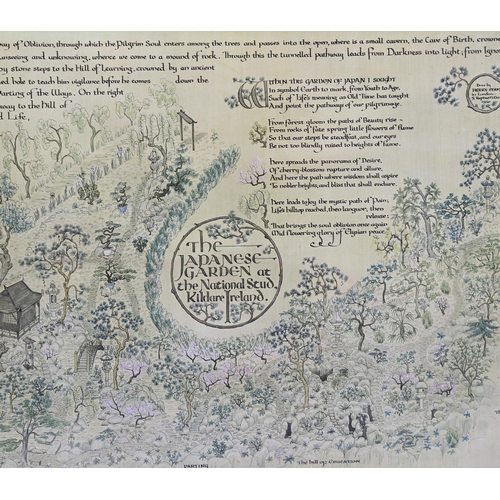 way of Oblivion, through which the Pilgrim Soul enters among the trees and passes into the open, where is a small cavern, the Cave of Birth, crowne
unseeing and unknowing, whence we come to a mound of rock. Through this the tunnelled pathway leads from Darkness into light; from Igno
by stone steps to the Hill of Learning, crowned by an ancient
ed hole to teach him vigilance before he comes down the
Parting of the Ways. On the right
way to the hill of
d Life,
When the Garden of Japan I sought
In symbol Earth to mark, from Youth to Age,
Such of Life's meaning as Old Time has taught
And point the pathways of our pilgrimage.
From forest gloom the paths of Beauty rise –
From rocks of fate spring little flowers of flame
So that our steps be steadfast, and our eyes
Be not too blindly raised to heights of fame.
Here spreads the panorama of Desire,
Of cherry-blossom rapture and allure,
And here the path where wisdom shall aspire
To nobler heights, and bliss that shall endure.
Here leads to Joy the mystic path of Pain;
Life's hilltop reached, then languor, then
release:
That brings the soul oblivion once again
Mid flowering glory of Elysian peace.
The
Japanese
Garden at
the National Stud,
Kildare Ireland.
PARTING
The hill of